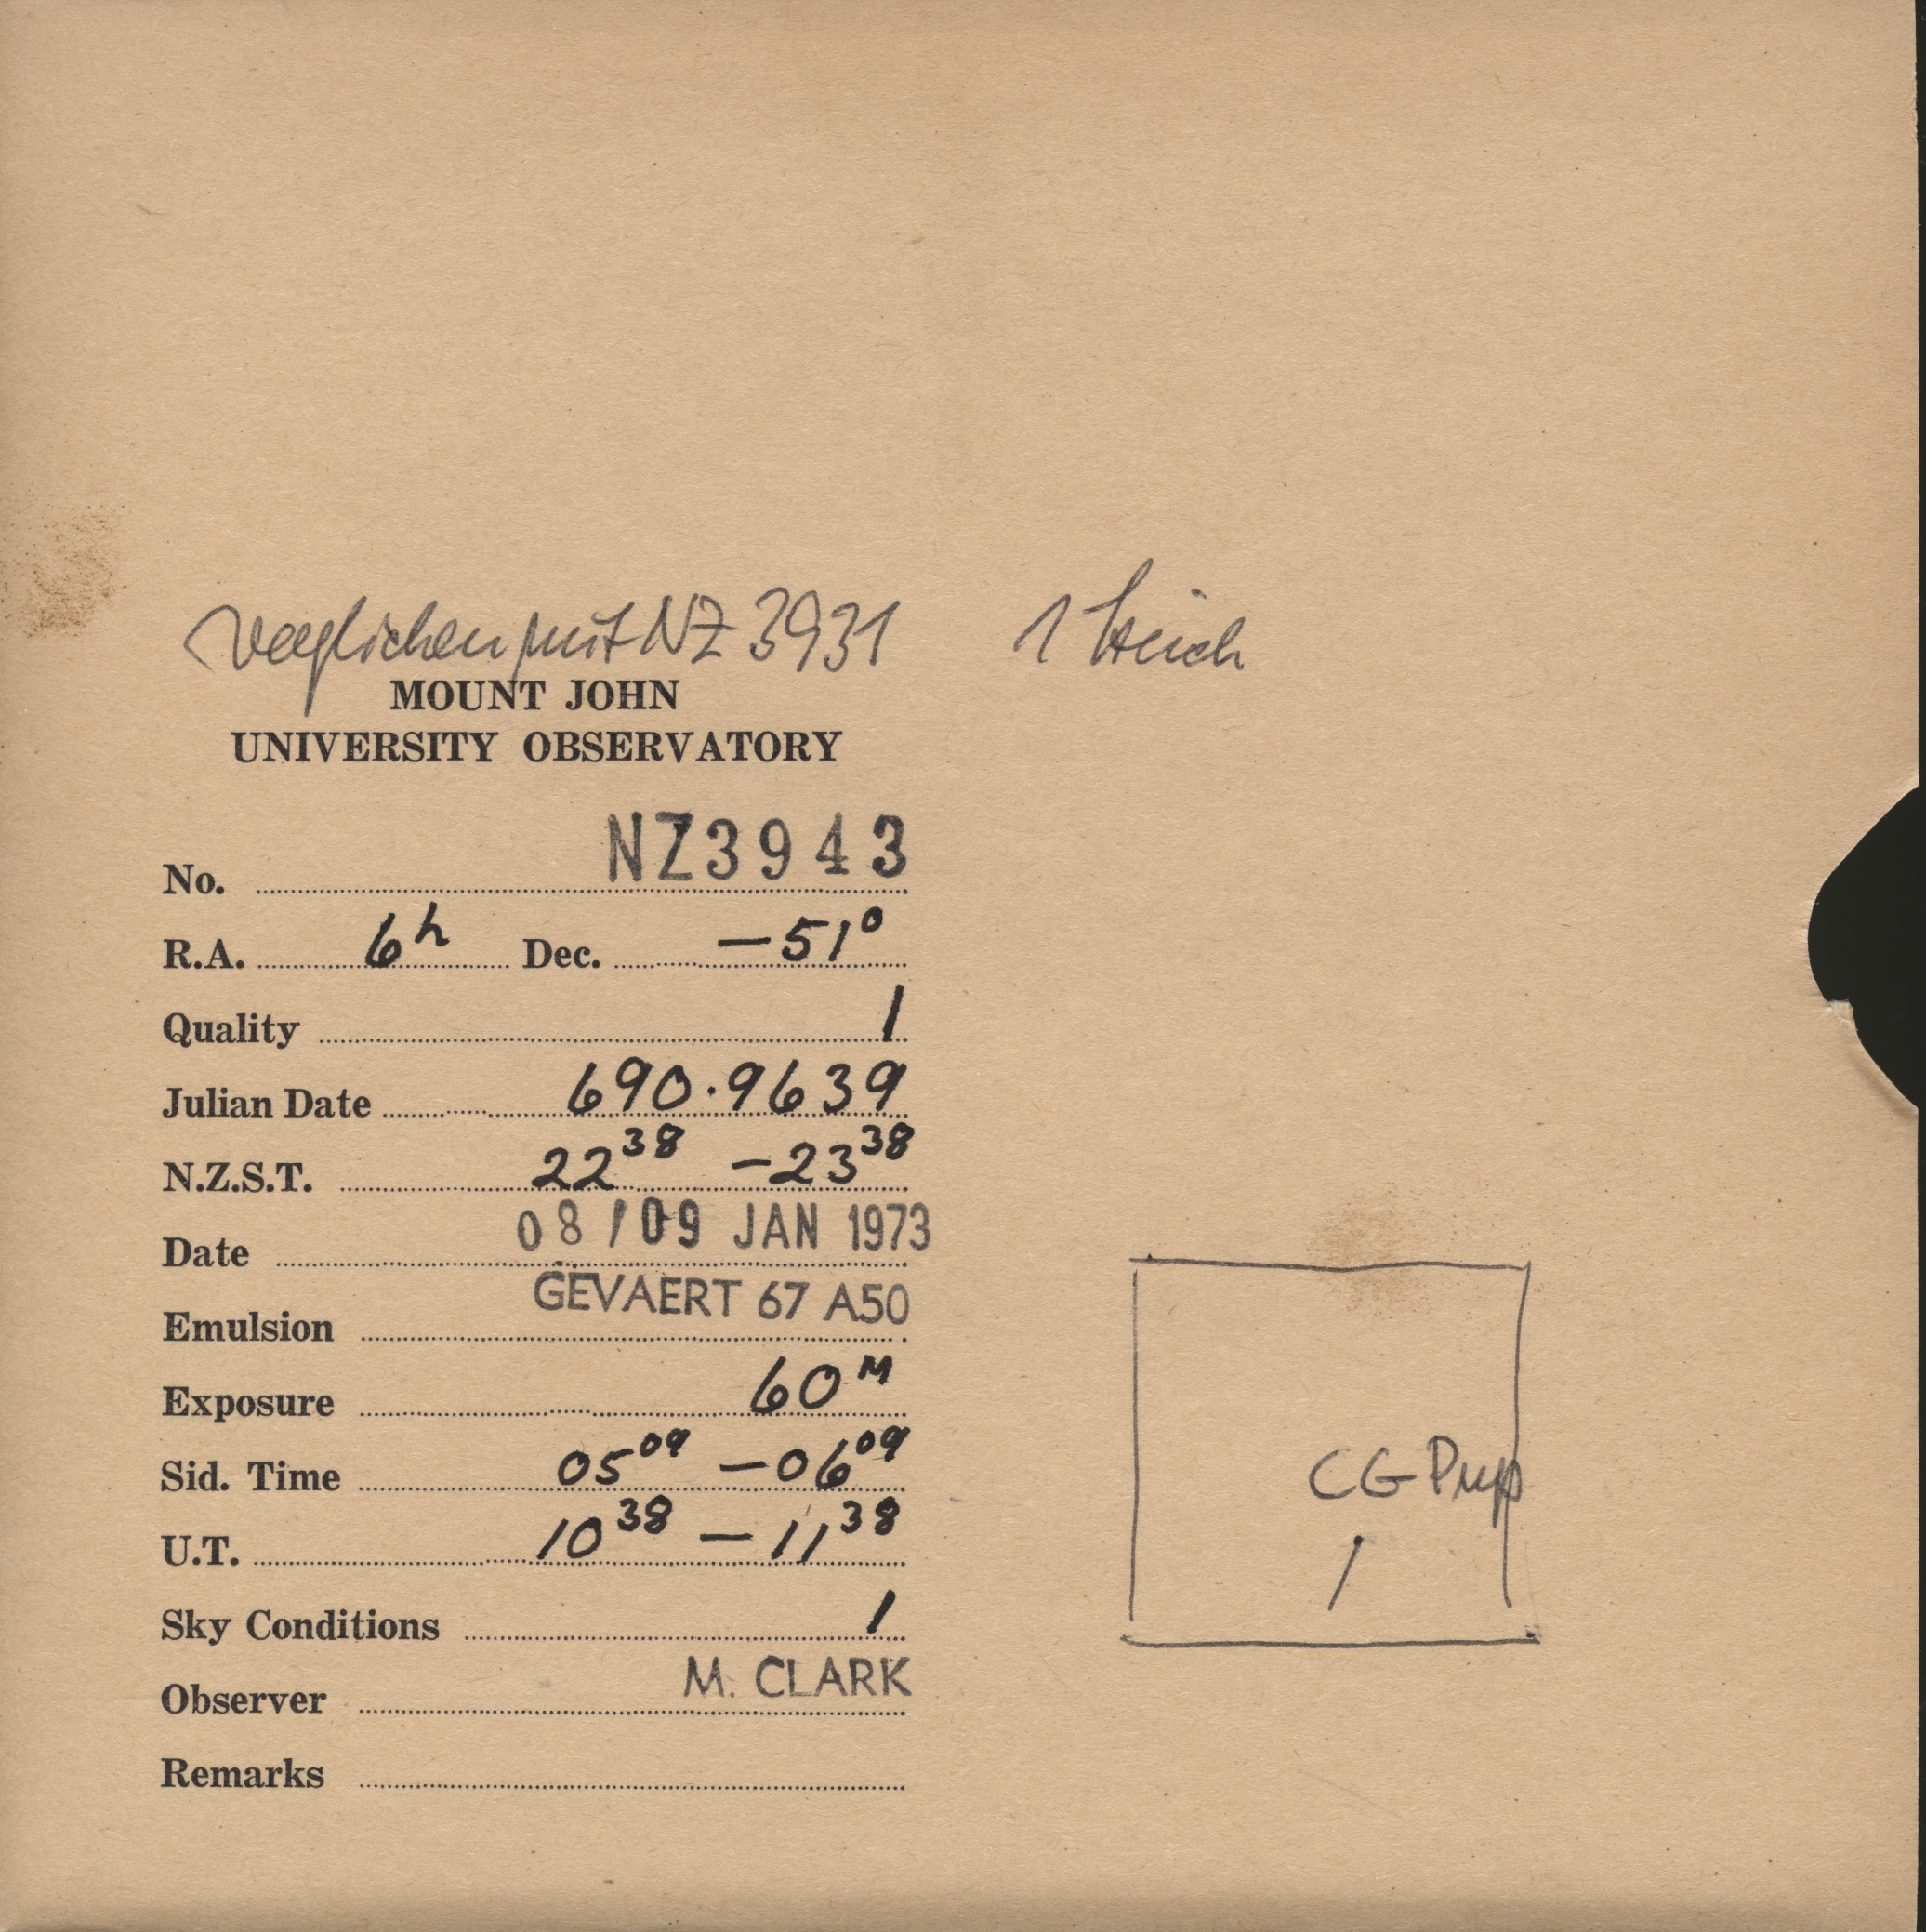 verglichen mit NZ 3931 1 Strich
MOUNT JOHN
UNIVERSITY OBSERVATORY
No. NZ3943
R.A. 6h Dec. -51°
Quality 1
Julian Date 690.9639
N.Z.S.T. 22 38 - 23 38
Date 08/09 JAN 1973
Emulsion GEVAERT 67 A50
Exposure 60M
Sid. Time 05 09 - 06 09
U.T. 10 38 - 11 38
Sky Conditions 1
Observer M. CLARK
Remarks
CG Pup